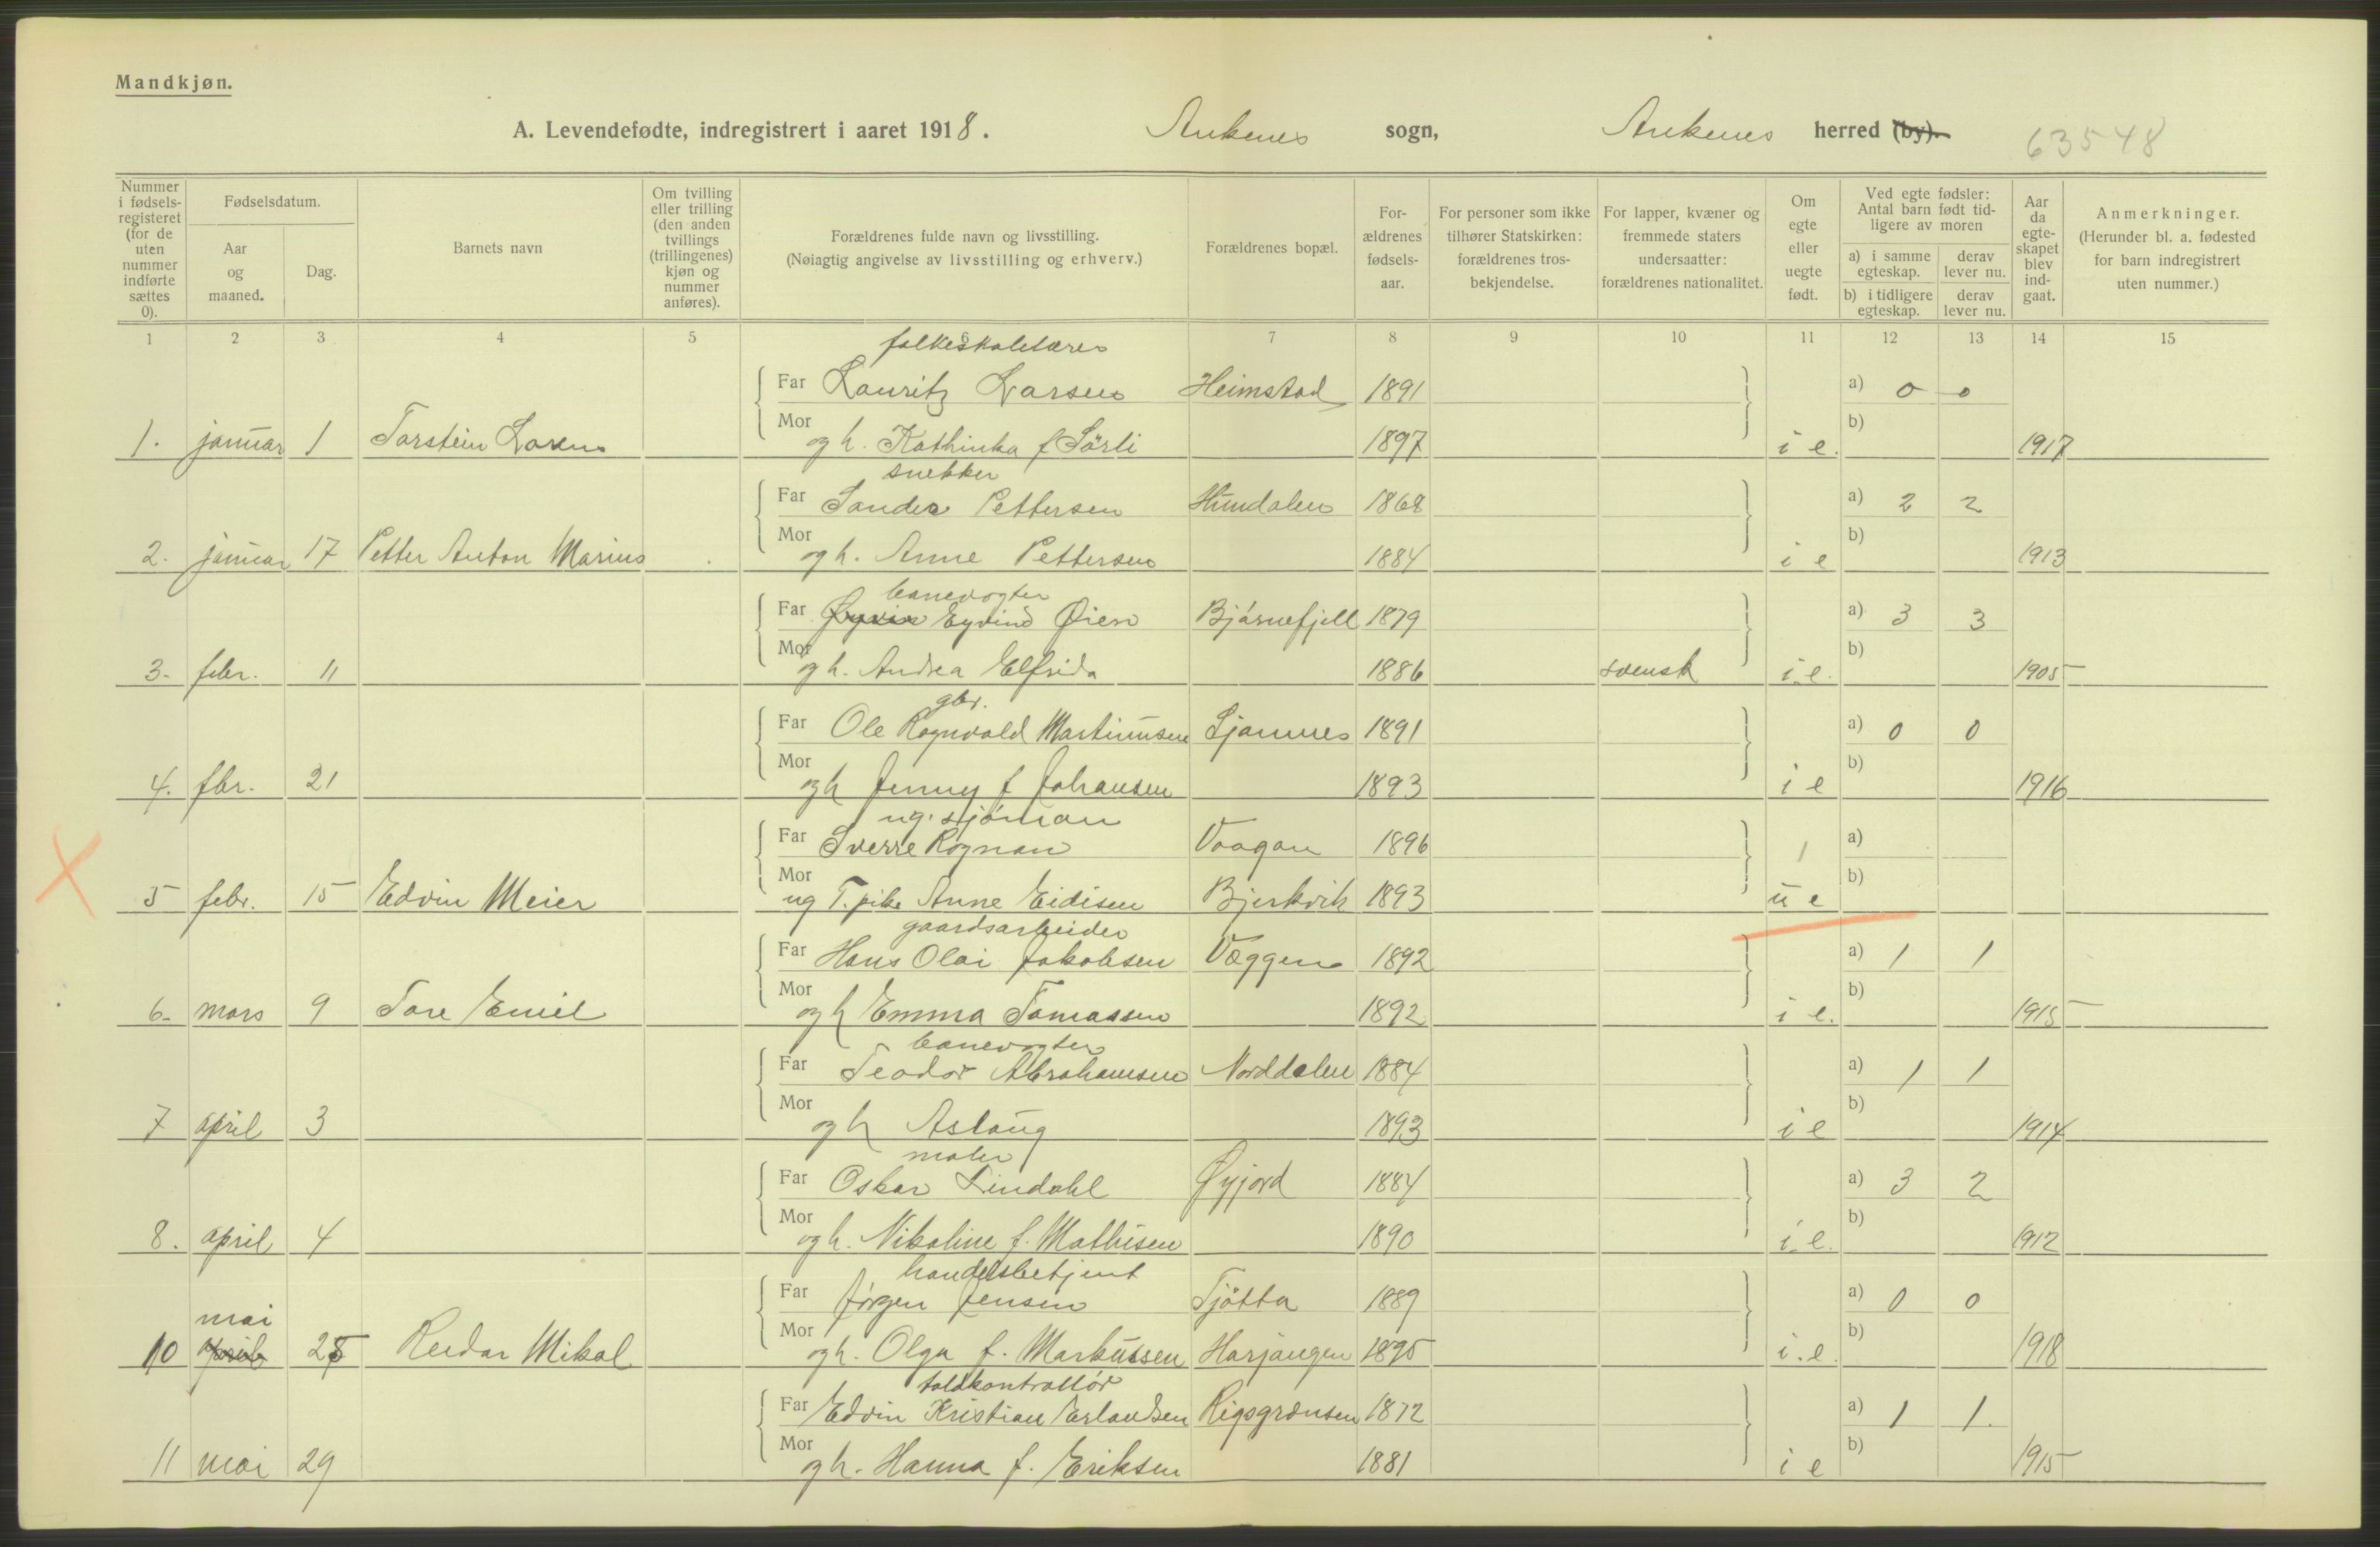 Mandkjøn.
A. Levendefødte, indregistrert i aaret 1918. Ankenes sogn, Ankenes herred (by). 63548
Nummer i fødsels-registeret (for de uten nummer indførte sættes 0).
Fødselsdatum.
Aar og maaned.
Dag.
Barnets navn
Om tvilling eller trilling (den anden tvillings (trillingenes) kjøn og nummer anføres).
Forældrenes fulde navn og livsstilling.
(Nøiagtig angivelse av livsstilling og erhverv.)
Forældrenes bopæl.
For-ældrenes fødsels-aar.
For personer som ikke tilhører Statskirken: forældrenes tros-bekjendelse.
For lapper, kvæner og fremmede staters undersaatter: forældrenes nationalitet.
Om egte eller uegte født.
Ved egte fødsler: Antal barn født tid-ligere av moren
a) i samme egteskap. derav lever nu.
b) i tidligere egteskap. derav lever nu.
Aar da egte-skapet blev ind-gaat.
Anmerkninger.
(Herunder bl. a. fødested for barn indregistrert uten nummer.)
1 2 3 4 5 6 7 8 9 10 11 12 13 14 15
folkeskolelærer
Far Lauritz Larsen Heimstad 1891 a) 0 0
Mor b)
1. januar 1 Torstein Larsen og h. Kathinka f Sörli 1897 i e. 1917
snekker
Far Sander Pettersen Hundalen 1868 a) 2 2
Mor b)
2. januar 17 Petter Anton Marius og h. Anne Pettersen 1884 i e 1913
banevogter
Far Eyvind Øien Bjørnefjell 1879 a) 3 3
Mor b)
3. febr. 11 og h. Andrea Elfrida 1886 svensk i e. 1905
gbr.
Far Ole Rognvald Martinusen Ljannes 1891 a) 0 0
Mor b)
4. fbr. 21 og h Jenny f Johansen 1893 i e 1916
ug. sjöman
Far Sverre Rognan Vaagan 1896 1 a)
Mor b)
5 febr. 15 Edvin Meier ug T. pike Anne Eidisen Bjerkvik 1893 u e
gaardsarbeider
Far Hans Olai Jakobsen Væggen 1892 a) 1 1
Mor b)
6. mars 9 Tore Emil og h Emma Tomassen 1892 i e. 1915
banevogter
Far Teodor Abrahamsen Norddalen 1884 a) 1 1
Mor b)
7 april 3 og h Aslaug 1893 i e 1914
maler
Far Oskar Lindahl Øyjord 1884 a) 3 2
Mor b)
8. april 4 og h. Nikoline f. Mathisen 1890 i e. 1912
handelsbetjent
Far Jörgen Jensen Tjötta 1889 a) 0 0
mai
Mor b)
10 april 25 Reidar Mikal og h. Olga f. Markussen Harjangen 1895 i. e. 1918
toldkontrollör
Far Edvin Kristian Erlandsen Rigsgrænsen 1872 a) 1 1.
Mor b)
11 mai 29 og h. Hanna f. Eriksen 1881 i e 1915